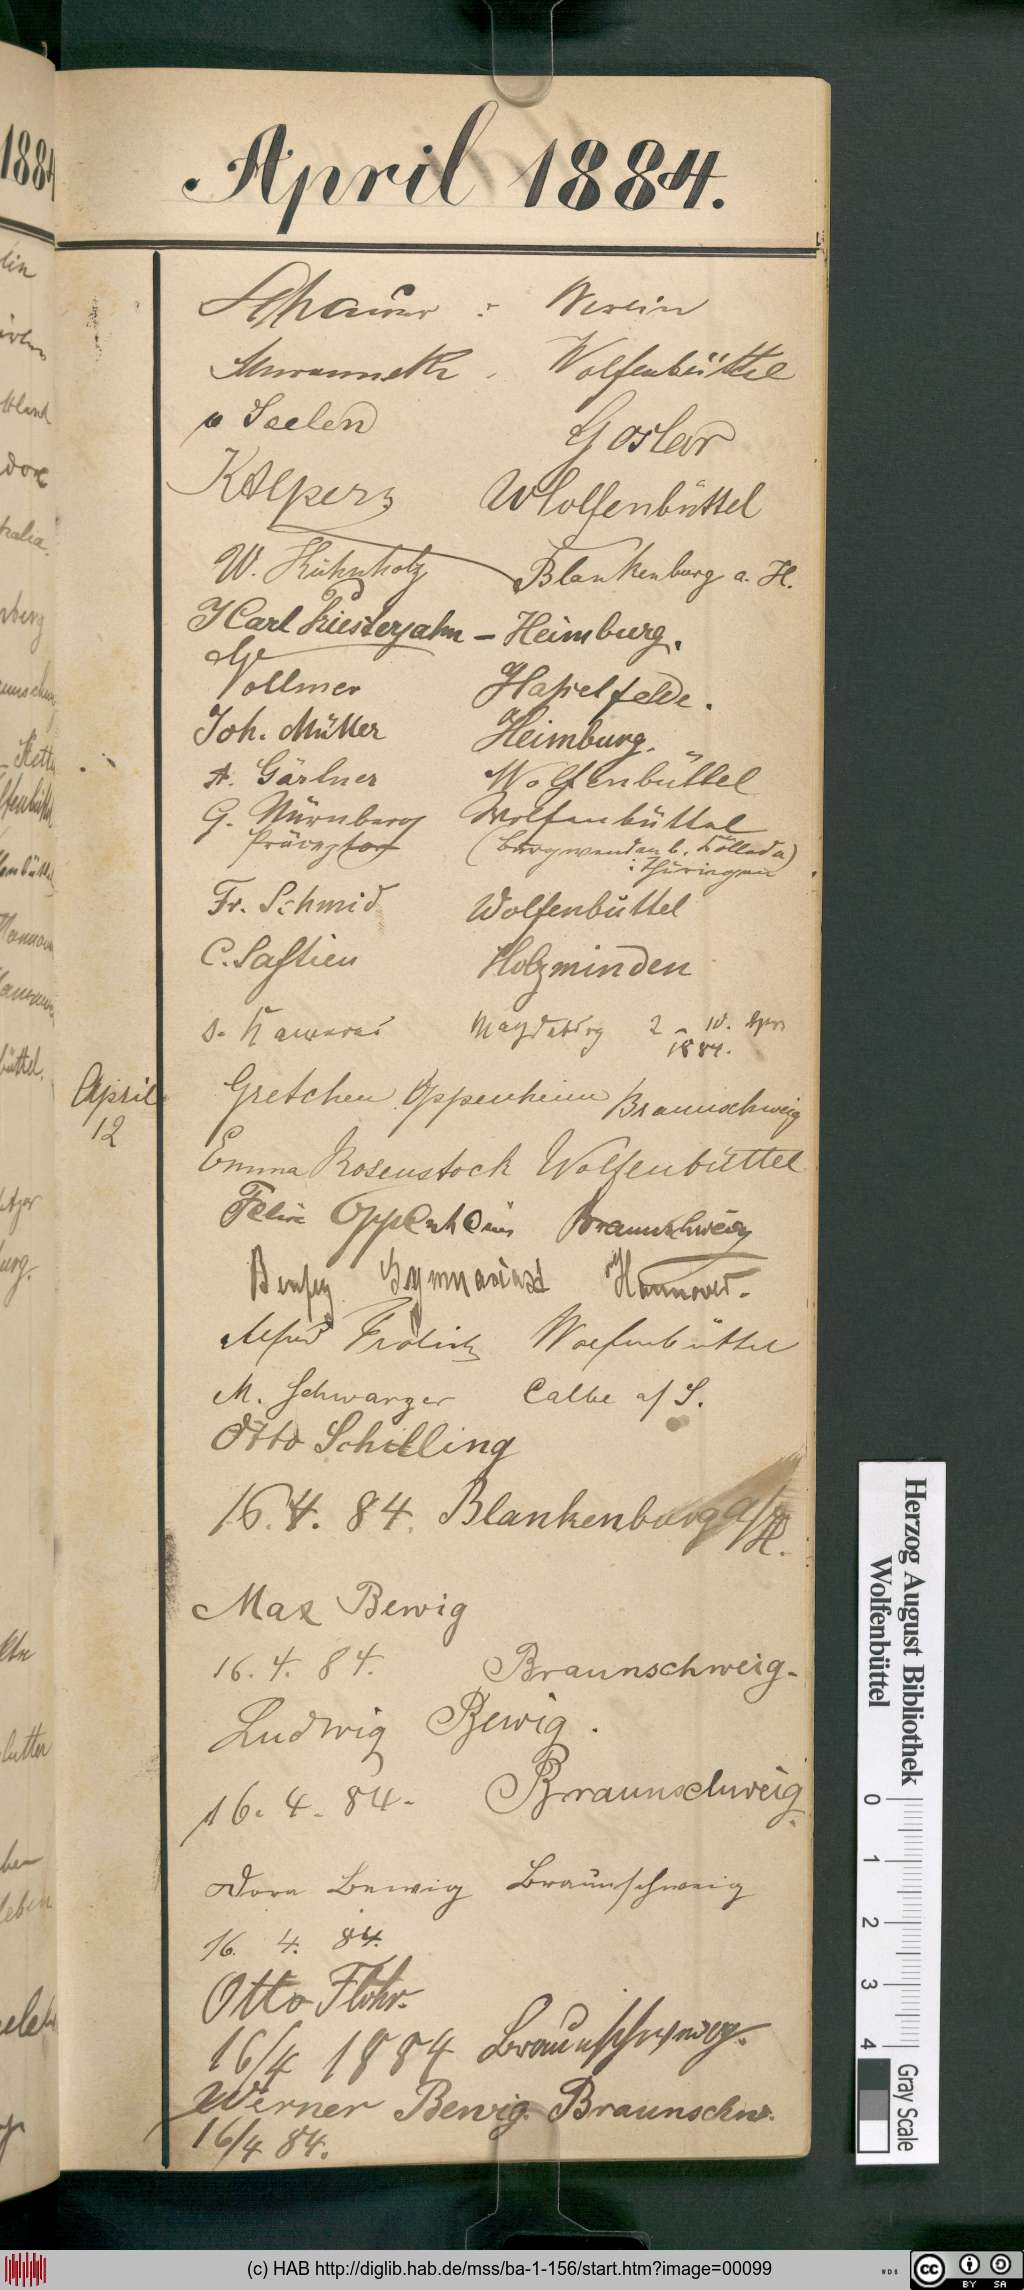 April 1884.
Verein
Wolfenbüttel
v Seelen Goslar
K Alpers Wolfenbüttel
W. Kühnholz Blankenburg a. H.
Karl Kiesterjahn - Heimburg.
Vollmer Hasselfelde.
Joh. Müller Heimburg.
A. Gärtner Wolfenbüttel
G. Nürnberg Wolfenbüttel
Präceptor
Thüringen
Fr. Schmid Wolfenbüttel
C. Saftien Holzminden
Magdeburg 2 - 10. Apr
1884.
April Gretchen Oppenheim Braunschweig
12
Emma Rosenstock Wolfenbüttel
Felix Oppenheim Braunschweig
Benfey Gymnasiast Hannover.
Alfred Wolfenbüttel
M. Schwarzer Calbe a/S.
Otto Schilling
16. 4. 84. Blankenburg a/H.
Max Bewig
16. 4. 84. Braunschweig.
Ludwig Bewig.
16. 4. 84. Braunschweig.
Dora Bewig Braunschweig
16. 4. 84.
Otto Flohr.
16/4 1884 Braunschweig.
Werner Bewig. Braunschw.
16/4 84.
Herzog August Bibliothek
Wolfenbüttel
0 1 2 3 4
Gray Scale
(c) HAB http://diglib.hab.de/mss/ba-1-156/start.htm?image=00099
cc BY SA